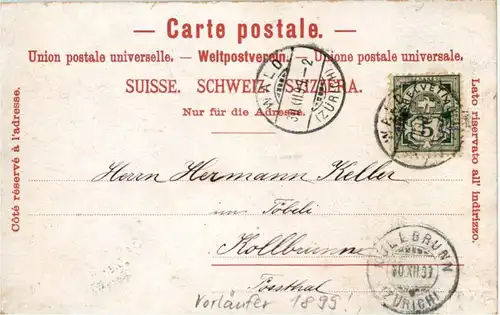 Carte postale.
Union postale universelle. — Weltpostverein. — Unione postale universale.
SUISSE. SCHWEIZ. SVIZZERA.
Nur für die Adresse.
Côté réservé à l'adresse.
Lato riservato all' indirizzo.
WALD
(ZÜRICH)
HELVETIA
5
Herrn Hermann Keller
im Töbeli
Kollbrunn
Tössthal
KOLLBRUNN
(ZÜRICH)
Vorläufer 1899!